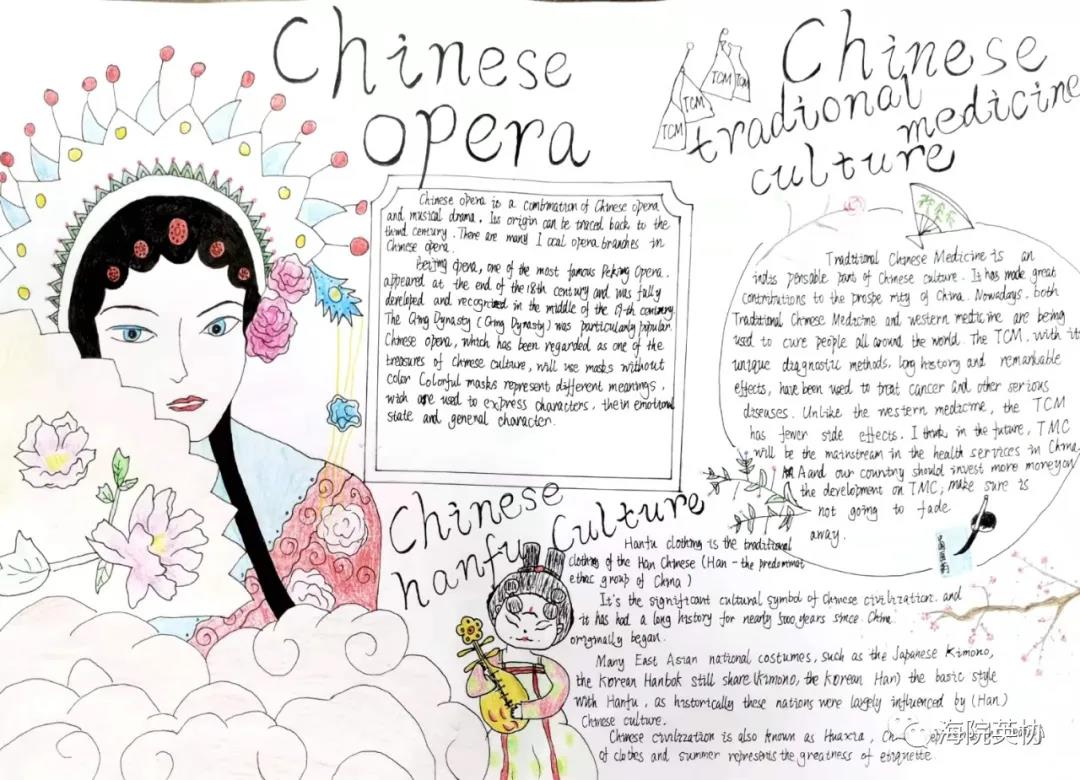 Chinese
opera
Chinese opera is a combination of Chinese opera
and musical drama. Its origin can be traced back to the
third century. There are many l ocal opera branches in
Chinese opera.
Beijing opera, one of the most famous Peking Opera.
appeared at the end of the 18th century and was fully
developed and recognized in the middle of the 19-th century.
The Qing Dynasty (Qing Dynasty) was particularly popular
Chinese opera, which has been regarded as one of the
treasures of Chinese culture, will use masks without
color Colorful masks represent different meanings,
wich are used to express characters, their emotional
state and general character.
TCM
TCM
TCM
TCM
Chinese
tradional
medicine
culture
Traditional Chinese Medicine is an
indis pensable part of Chinese culture. It has made great
contributions to the prospe rity of China. Nowadays, both
Traditional Chinese Medicine and western medicine are being
used to cure people all around the world. The TCM, with its
unique diagnostic methods, long history and remarkable
effects, have been used to treat cancer and other serious
diseases. Unlike the western medicine, the TCM
has fewer side effects. I think, in the future, TMC
will be the mainstream in the health services in China
and our country should invest more money on
the development on TMC; make sure is
not going to fade
away.
Chinese
hanfu Culture
Hanfu clothing is the traditional
clothing of the Han Chinese (Han - the predominat
ethnic group of China)
It's the significant cultural symbol of Chinese civilization. and
it has had a long history for nearly 5000 years since China
originally began.
Many East Asian national costumes, such as the Japanese Kimono,
the Korean Hanbok still share (Kimono, the Korean Han) the basic style
with Hanfu, as historically these nations were largely influenced by (Han)
Chinese culture.
Chinese civilization is also known as Huaxia,
of clothes and summer represents the greatness of etiquette
海院英协